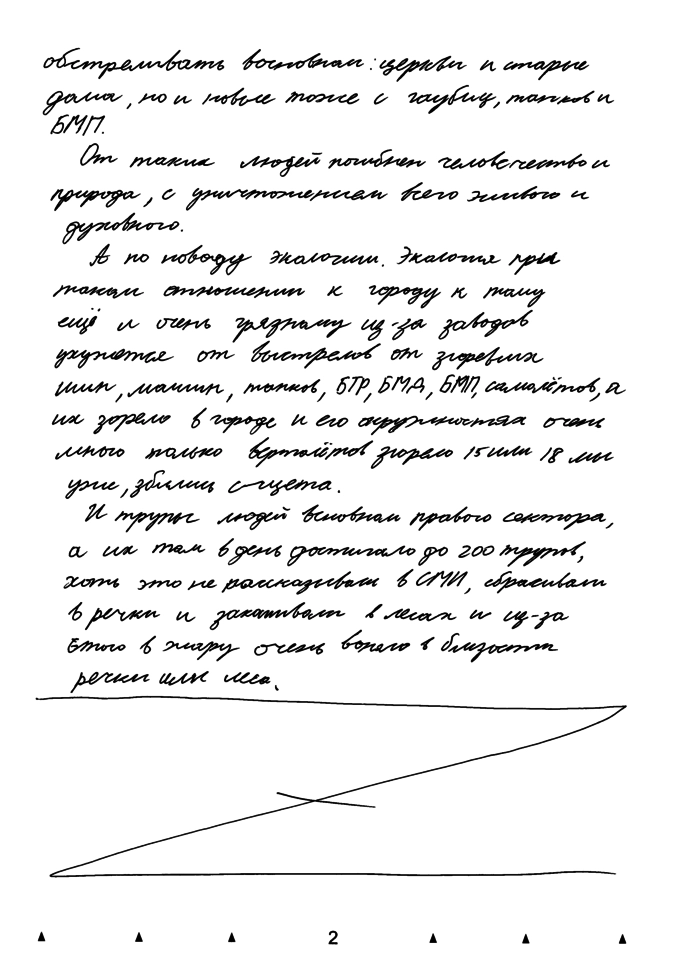 обстреливать восновном: церкви и старые
дома, но и новые тоже с гаубиц, танков и
БМП.
От таких людей погибнен человечество и
природа, с уничтожением всего живого и
духовного.
А по поводу экологии. Экология при
таком отношении к городу к тому
ещё и очень грядному из-за заводов
ухунжтся от выстрелов от згоревших
шин, машин, танков, БТР, БМД, БМП, самолётов, а
их зорело в городе и его окружностях очень
много только вертолётов згорело 15 или 18 мы
уже, збились с щета.
И трупы людей всновном правого сектора,
а их там в день достигало до 200 трупов,
хоть это не рассказывали в СМИ, сбрасивали
в речки и закапивали в лесах и из-за
Етого в жару очень воняло в близости
речки или леса.
2